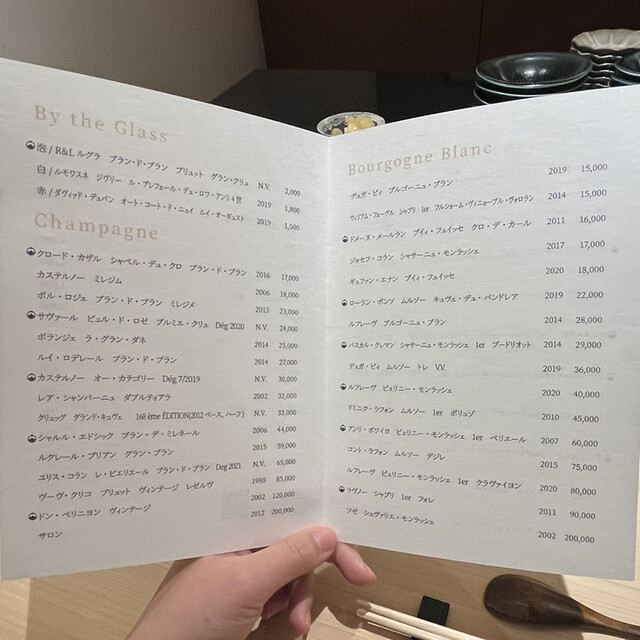 By the Glass
泡/R&L ルグラ ブラン・ド・ブラン ブリュット グラン・クリュ N.V. 2,000
白/ルモワスネ ジヴリー ル・プレフェール・デュ・ロワ・アンリ4世 2019 1,800
赤/ダヴィッド・デュバン オート・コート・ド・ニュイ ルイ・オーギュスト 2019 1,500
Champagne
クロード・カザル シャペル・デュ・クロ ブラン・ド・ブラン 2016 17,000
カステルノー ミレジム 2006 18,000
ポル・ロジェ ブラン・ド・ブラン ミレジメ 2013 23,000
サヴァール ビュル・ド・ロゼ プルミエ・クリュ Dég 2020 N.V. 24,000
ボランジェ ラ・グラン・ダネ 2014 25,000
ルイ・ロデレール ブラン・ド・ブラン 2014 27,000
カステルノー オー・カテゴリー Dég 7/2019 N.V. 30,000
レア・シャンパーニュ ダブルティアラ 2002 32,000
クリュッグ グランド・キュヴェ 168 ème ÉDITION(2012 ベース、ハーフ) N.V. 33,000
シャルル・エドシック ブラン・デ・ミレネール 2006 44,000
ルクレール・ブリアン グラン・ブラン 2015 59,000
ユリス・コラン レ・ピエリエール ブラン・ド・ブラン Deg 2021 N.V. 65,000
ヴーヴ・クリコ ブリュット ヴィンテージ レゼルヴ 1988 85,000
ドン・ペリニヨン ヴィンテージ 2002 120,000
サロン 2012 200,000
Bourgogne Blanc
デュガ・ピィ ブルゴーニュ・ブラン 2019 15,000
ウィリアム・フェーヴル シャブリ 1er フルショーム・ヴィニョーブル・ヴォロラン 2014 15,000
ドメーヌ・メールラン プイィ・フュイッセ クロ・デ・カール 2011 16,000
ジョセフ・コラン シャサーニュ・モンラッシェ 2017 17,000
ギュファン・エナン プイィ・フュイッセ 2020 18,000
ローラン・ポンソ ムルソー キュヴェ・デュ・パンドレア 2019 22,000
ルフレーヴ ブルゴーニュ・ブラン 2014 28,000
パスカル・クレマン シャサーニュ・モンラッシェ 1er ブードリオット 2014 29,000
デュガ・ピィ ムルソー トレ V.V. 2019 36,000
ルフレーヴ ピュリニー・モンラッシェ 2020 40,000
ドミニク・ラフォン ムルソー 1er ポリュゾ 2010 45,000
アンリ・ボワイヨ ピュリニー・モンラッシェ 1er ペリエール 2007 60,000
コント・ラフォン ムルソー デジレ 2015 75,000
ルフレーヴ ピュリニー・モンラッシェ 1er クラヴァイヨン 2020 80,000
ラヴノー シャブリ 1er フォレ 2011 90,000
ソゼ シュヴァリエ・モンラッシェ 2002 200,000